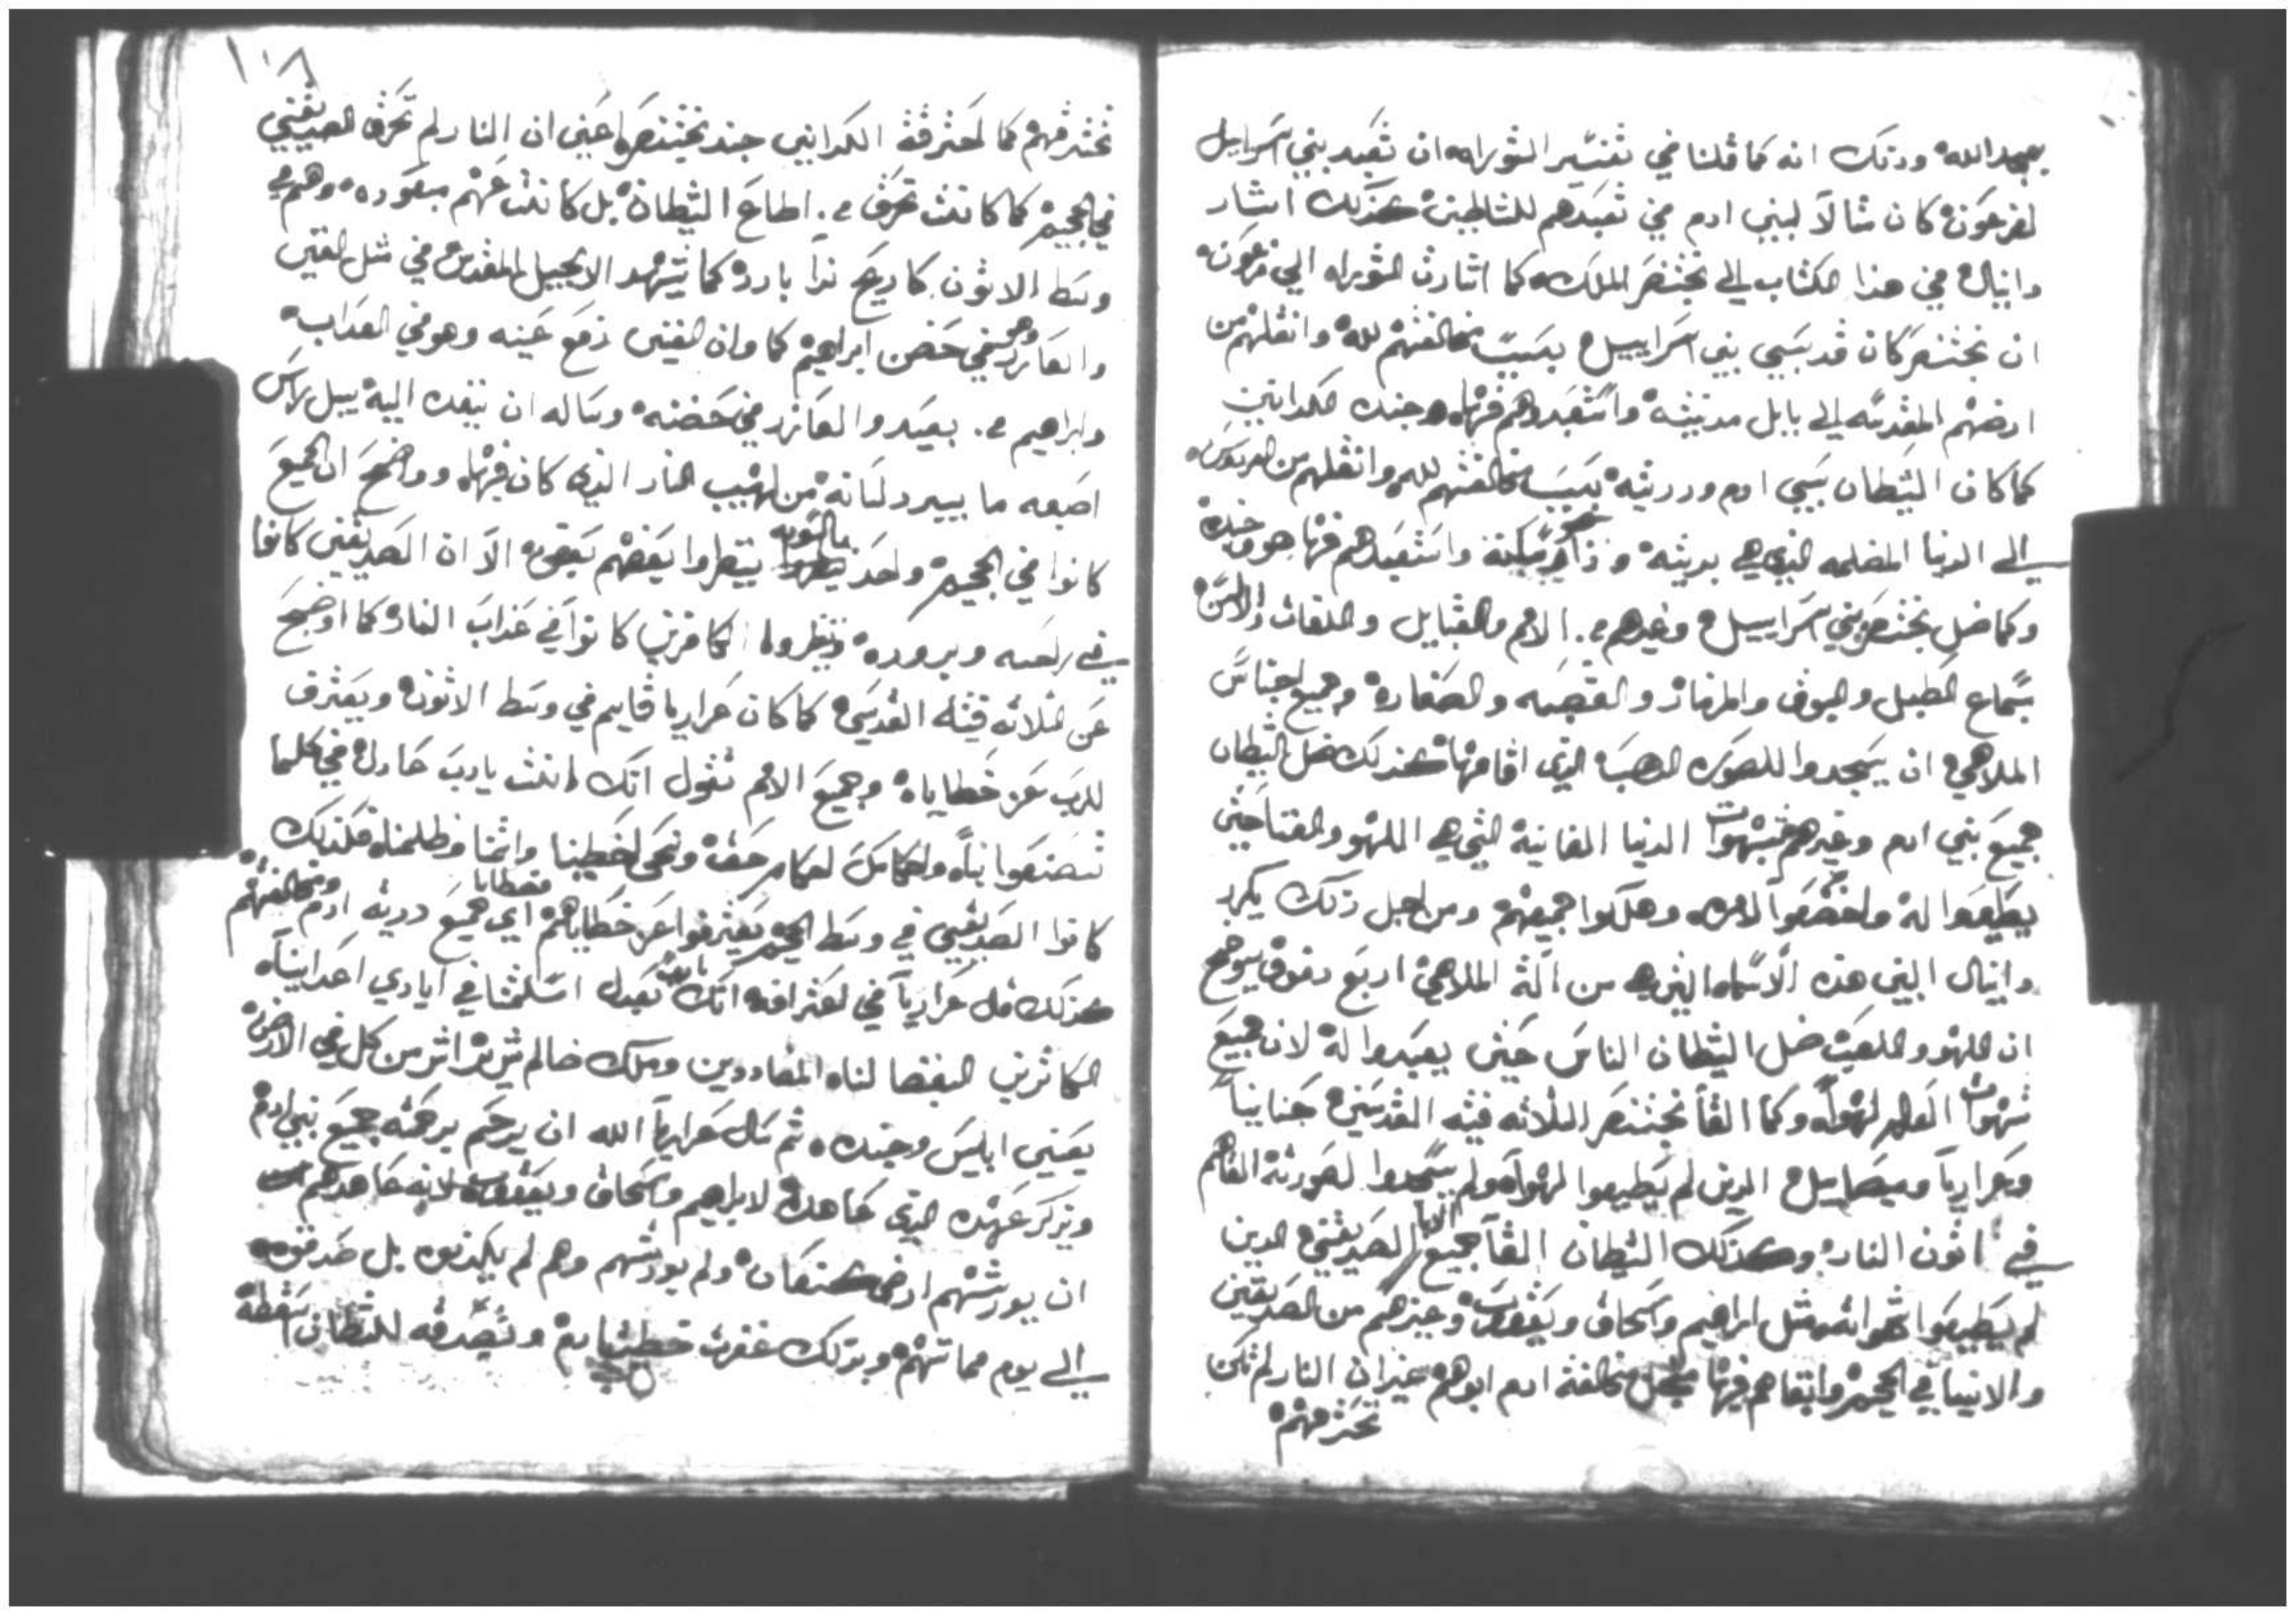 بمجد الله وذلك انه كما قلنا في تفسير التوراه ان تعبد بني اسراييل
لفرعون كان مثالاً لبني ادم في تعبدهم للشياطين كذلك اشار
دانيال في هذا الكتاب الي بختنصر الملك كما اشارت التوراه الي فرعون
ان بختنصر كان قد سبي بني اسراييل بسبب مخالفتهم لله وانقلهم من
ارضهم المقدسه الي بابل مدينته واستعبدهم فيها هو وجنده الكلدانيين
كما كان الشيطان سبي ادم وذريته بسبب مخالفتهم لله وانقلهم من الفردوس
الي الدنيا المظلمه الذي هي مدينته واستعبدهم فيها هو وجنده
وكما ضل بختنصر بني اسراييل وغيرهم من الامم والقبايل واللغات والالسن
بسماع الطبل والبوق والمزمار والقصبه والصفاره وجميع اجناس
الملاهي ان يسجدوا للصوره الدهب الذي اقامها كذلك ضل الشيطان
جميع بني ادم وغيرهم بشهوات الدنيا الفانيه التي هي اللهو والغنا حتي
يطيعوا له واخضعوا لامره وهلكوا جميعهم ومن اجل ذلك يكرر
دانيال النبي هذه الاسماء التي هي من آلة الملاهي اربع دفوع يوضح
ان اللهو واللعب ضل الشيطان الناس حتي يعبدوا له لان جميع
شهوات العالم لهواً وكما القا بختنصر الثلاثه فتيه القديسين حنانيا
وعزاريا وميصاييل الدين لم يطيعوا لهواه ولم يسجدوا لصورته القاهم
في اتون النار وكذلك الشيطان القا جميع الابا الصديقين الدين
لم يطيعوا شهواته مثل ابراهيم واسحاق ويعقوب وغيرهم من الصديقين
والانبيا في الجحيم وابقاهم فيها من اجل مخالفة ادم ابوهم غير ان النار لم تكن
تحترقهم
١٠٨
تحترقهم كما احترقة الكلدانيين جند بختنصر اعني ان النار لم تحرق الصديقين
في الجحيم كما كانت تحرق من اطاع الشيطان بل كانت عنهم مبعوده وهم في
وسط الاتون كاريح ندا بارده كما يشهد الانجيل المقدس في مثل الغني
والعازر وهو في حضن ابراهيم كما وان الغني رفع عينه وهو في العداب
وابراهيم من بعيد والعازر في حضنه وساله ان ينفده اليه يبل راس
اصبعه ما يبرد لسانه من لهيب النار الذي كان فيها وواضح ان الجميع
كانوا في الجحيم واحد بالسويه ينظروا بعضهم بعض الا ان الصديقين كانوا
في راحه وبروده وينظروا الكافرين كانوا في عذاب النار كما اوضح
عن الثلاثه فتيه القديسي كما كان عزاريا قايم في وسط الاتون ويعترف
للرب عن خطاياه وجميع الامم تقول انك انت يارب عادل في كلما
تصنعوا بنا واحكامك احكام حق ونحن اخطينا واثمنا وظلمنا فكذلك
كانوا الصديقيي في وسط الجحيم يعترفوا عن خطاياهم اي جميع درية ادم ومخالفتهم
كذلك قال عزاريا في اعترافه انك يارب بعدل اسلمتنا في ايادي اعداينا
الكاثرين البغضا لنا المضاددين وملك ضالم شرير اشر من كل من في الارض
يعني ابليس وجنده ثم سال عزاريا الله ان يرحم برحمته جميع بني ادم
ويذكر عهده الذي عاهده لابراهيم واسحاق ويعقوب لانه عاهدهم
ان يورثهم ارض كنعان ولم يورثهم وهم لم يكدبوه بل صدقوه
الي يوم مماتهم وبذلك غفرت خطية ادم وتصدقه للشيطان